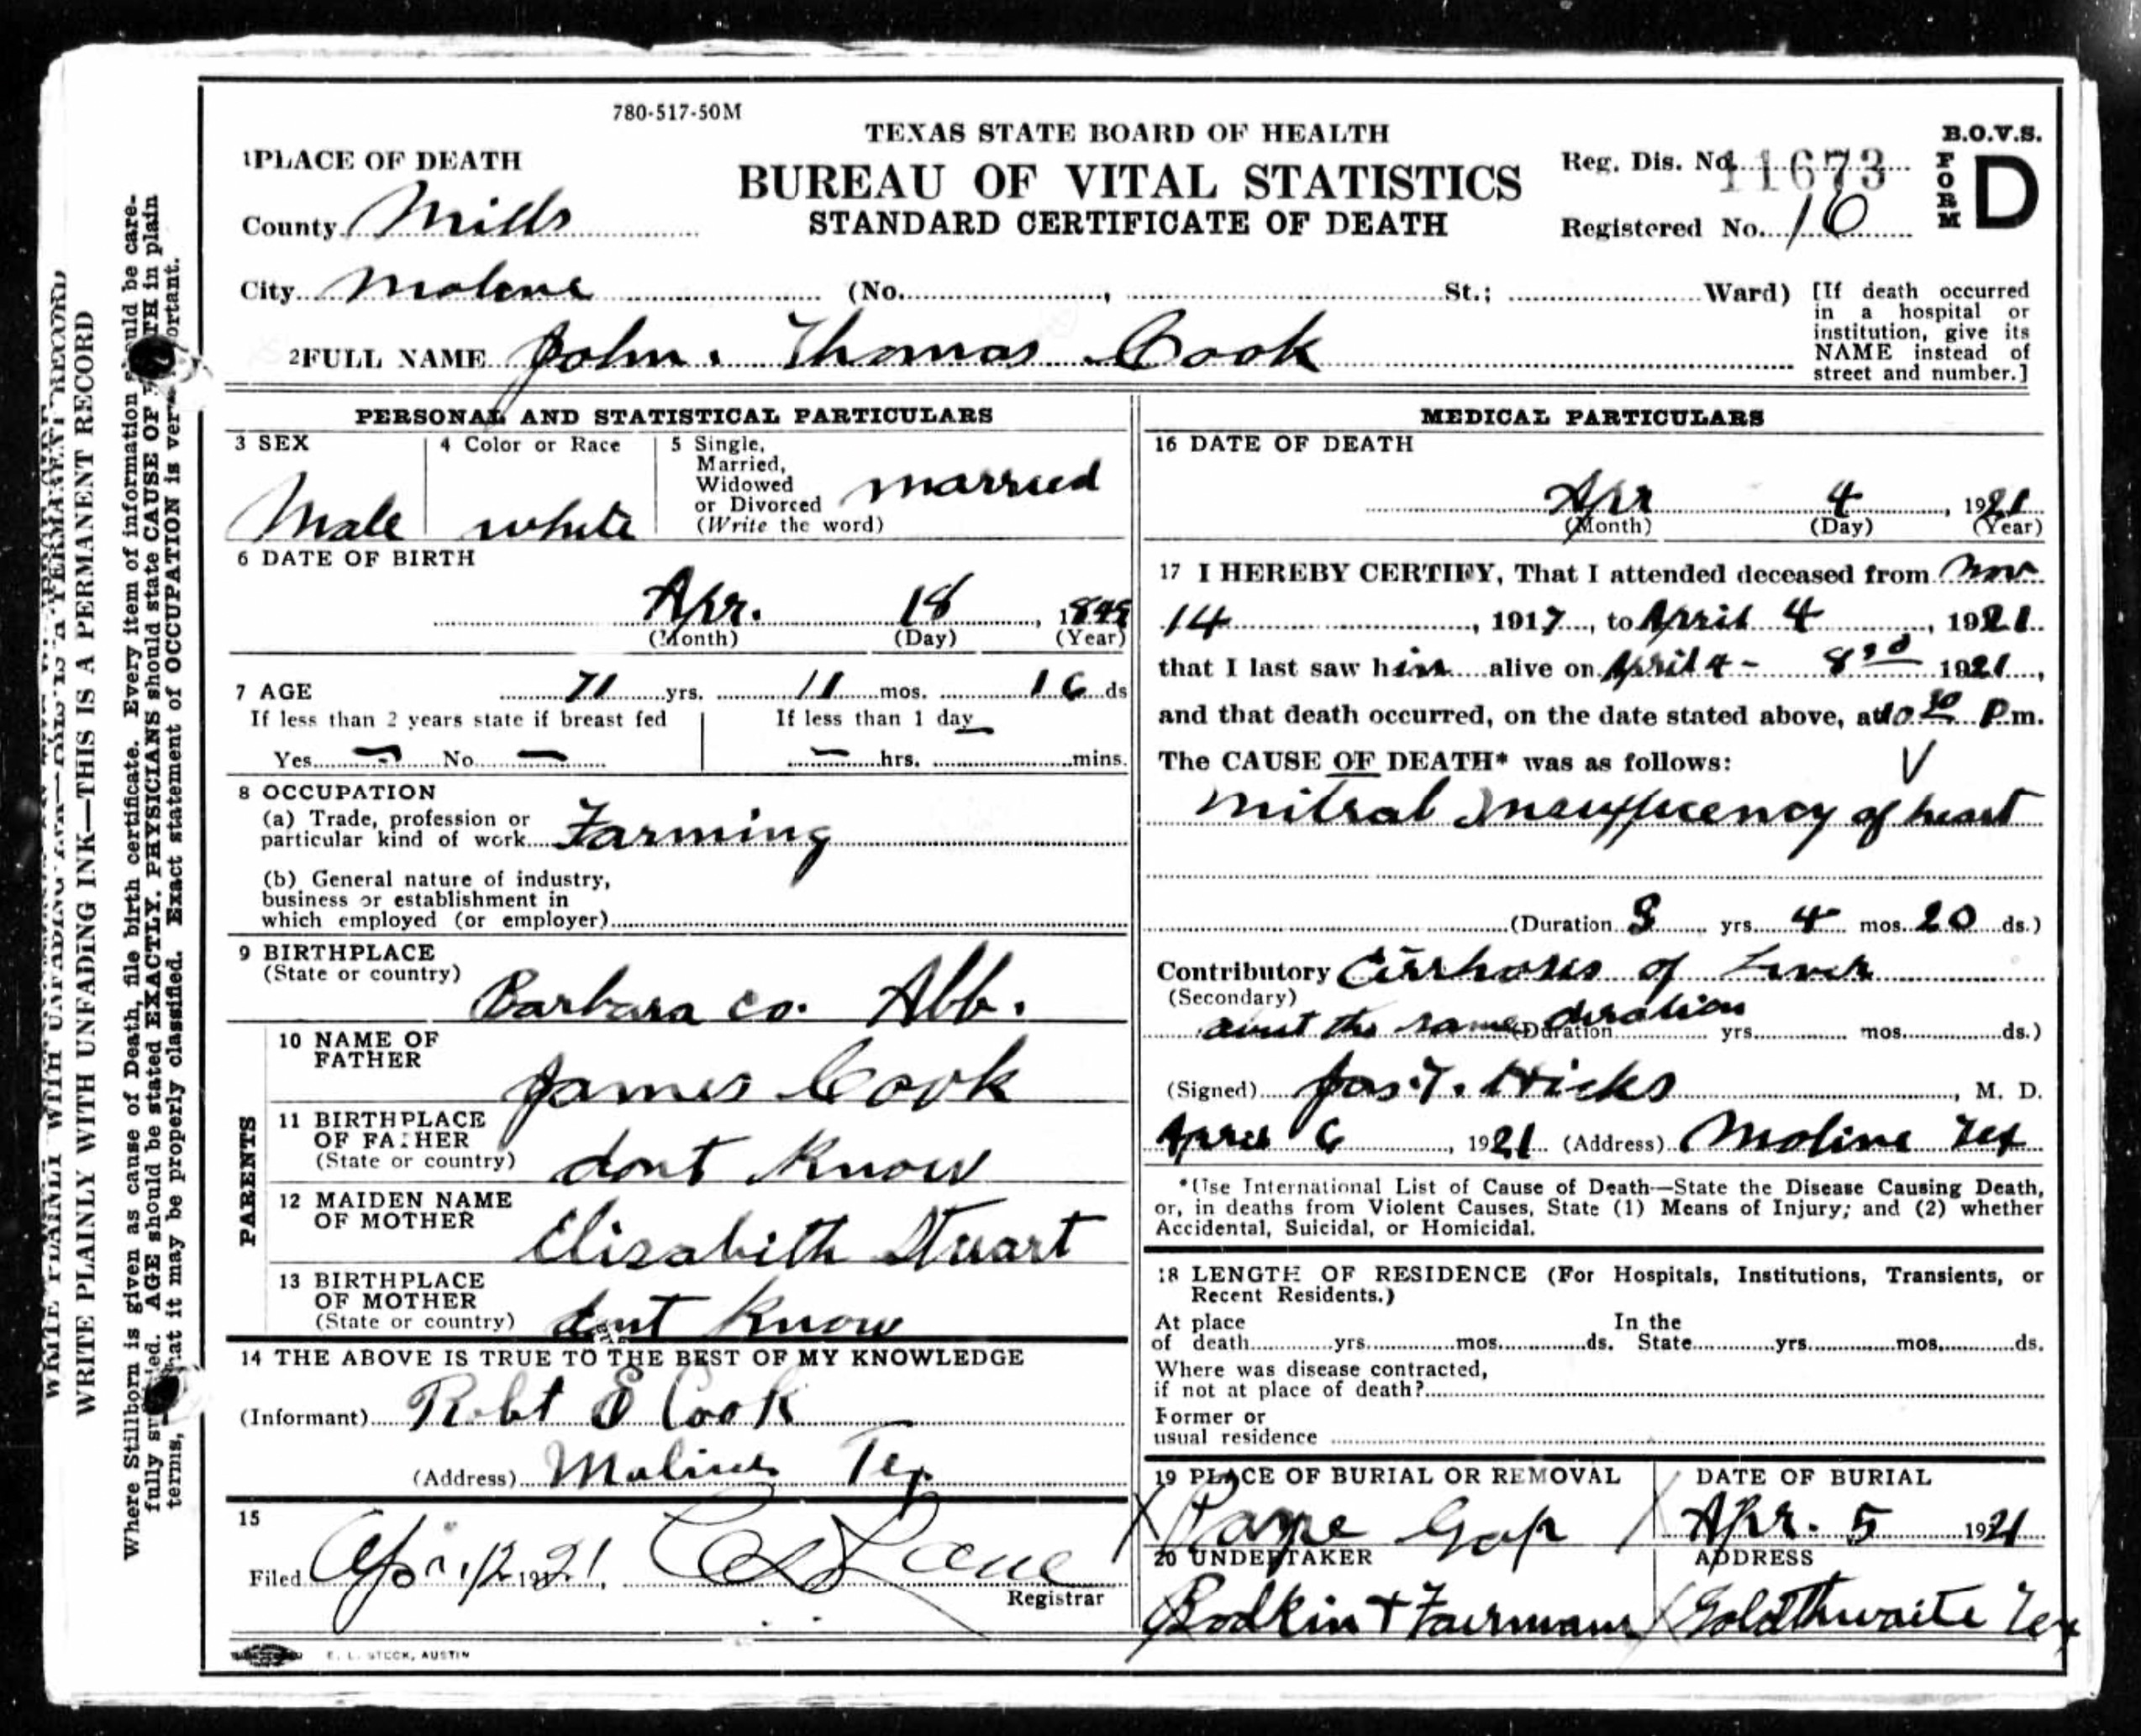 780-517-50M
TEXAS STATE BOARD OF HEALTH
BUREAU OF VITAL STATISTICS
STANDARD CERTIFICATE OF DEATH
B.O.V.S.
FORM D
Reg. Dis. No. 11673
Registered No. 16
1 PLACE OF DEATH
County Mills
City Moline (No. , St.; Ward)
[If death occurred
in a hospital or
institution, give its
NAME instead of
street and number.]
2 FULL NAME John. Thomas Cook
PERSONAL AND STATISTICAL PARTICULARS
3 SEX
Male
4 Color or Race
white
5 Single,
Married,
Widowed
or Divorced
(Write the word)
married
6 DATE OF BIRTH
Apr. 18, 1849
(Month) (Day) (Year)
7 AGE 71 yrs. 11 mos. 16 ds
If less than 2 years state if breast fed
Yes — No —
If less than 1 day
— hrs. mins.
8 OCCUPATION
(a) Trade, profession or
particular kind of work Farming
(b) General nature of industry,
business or establishment in
which employed (or employer)
9 BIRTHPLACE
(State or country)
Barbara co. Abb.
PARENTS
10 NAME OF
FATHER
James Cook
11 BIRTHPLACE
OF FATHER
(State or country) dont Know
12 MAIDEN NAME
OF MOTHER
Elizabith Stuart
13 BIRTHPLACE
OF MOTHER
(State or country) dont Know
14 THE ABOVE IS TRUE TO THE BEST OF MY KNOWLEDGE
(Informant) Robt E Cook
(Address) Moline Tex
15
Filed Apr. 12 1921,
Registrar
E. L. STECK, AUSTIN
MEDICAL PARTICULARS
16 DATE OF DEATH
Apr 4, 1921
(Month) (Day) (Year)
17 I HEREBY CERTIFY, That I attended deceased from Nov
14, 1917, to April 4, 1921
that I last saw him alive on April 4 - 8 1921,
and that death occurred, on the date stated above, at 10 30 P.m.
The CAUSE OF DEATH* was as follows:
Mitral Insufficency of heart
(Duration 3 yrs. 4 mos. 20 ds.)
Contributory Cirrhosis of Liver
(Secondary)
about the same duration (Duration yrs. mos. ds.)
(Signed) Jas. T. Hicks, M. D.
April 6, 1921 (Address) Moline Tex
*Use International List of Cause of Death—State the Disease Causing Death,
or, in deaths from Violent Causes, State (1) Means of Injury; and (2) whether
Accidental, Suicidal, or Homicidal.
18 LENGTH OF RESIDENCE (For Hospitals, Institutions, Transients, or
Recent Residents.)
At place In the
of death yrs. mos. ds. State yrs. mos. ds.
Where was disease contracted,
if not at place of death?
Former or
usual residence
19 PLACE OF BURIAL OR REMOVAL
Payne Gap
DATE OF BURIAL
Apr. 5 1921
20 UNDERTAKER
Bodkin + Fairman
ADDRESS
Goldthwaite Tex
WRITE PLAINLY WITH UNFADING INK—THIS IS A PERMANENT RECORD
Where Stillborn is given as cause of Death, file birth certificate. Every item of information should be care-
fully supplied. AGE should be stated EXACTLY. PHYSICIANS should state CAUSE OF DEATH in plain
terms, that it may be properly classified. Exact statement of OCCUPATION is very important.